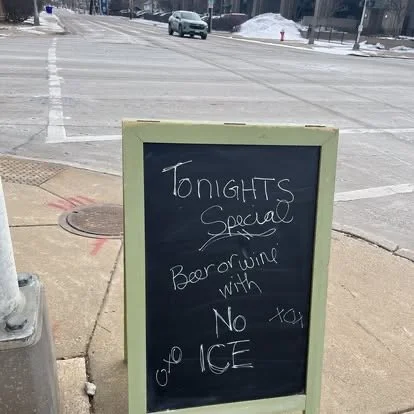 TONIGHTS
Special
Beer or wine
with
No
XOX
OXO ICE